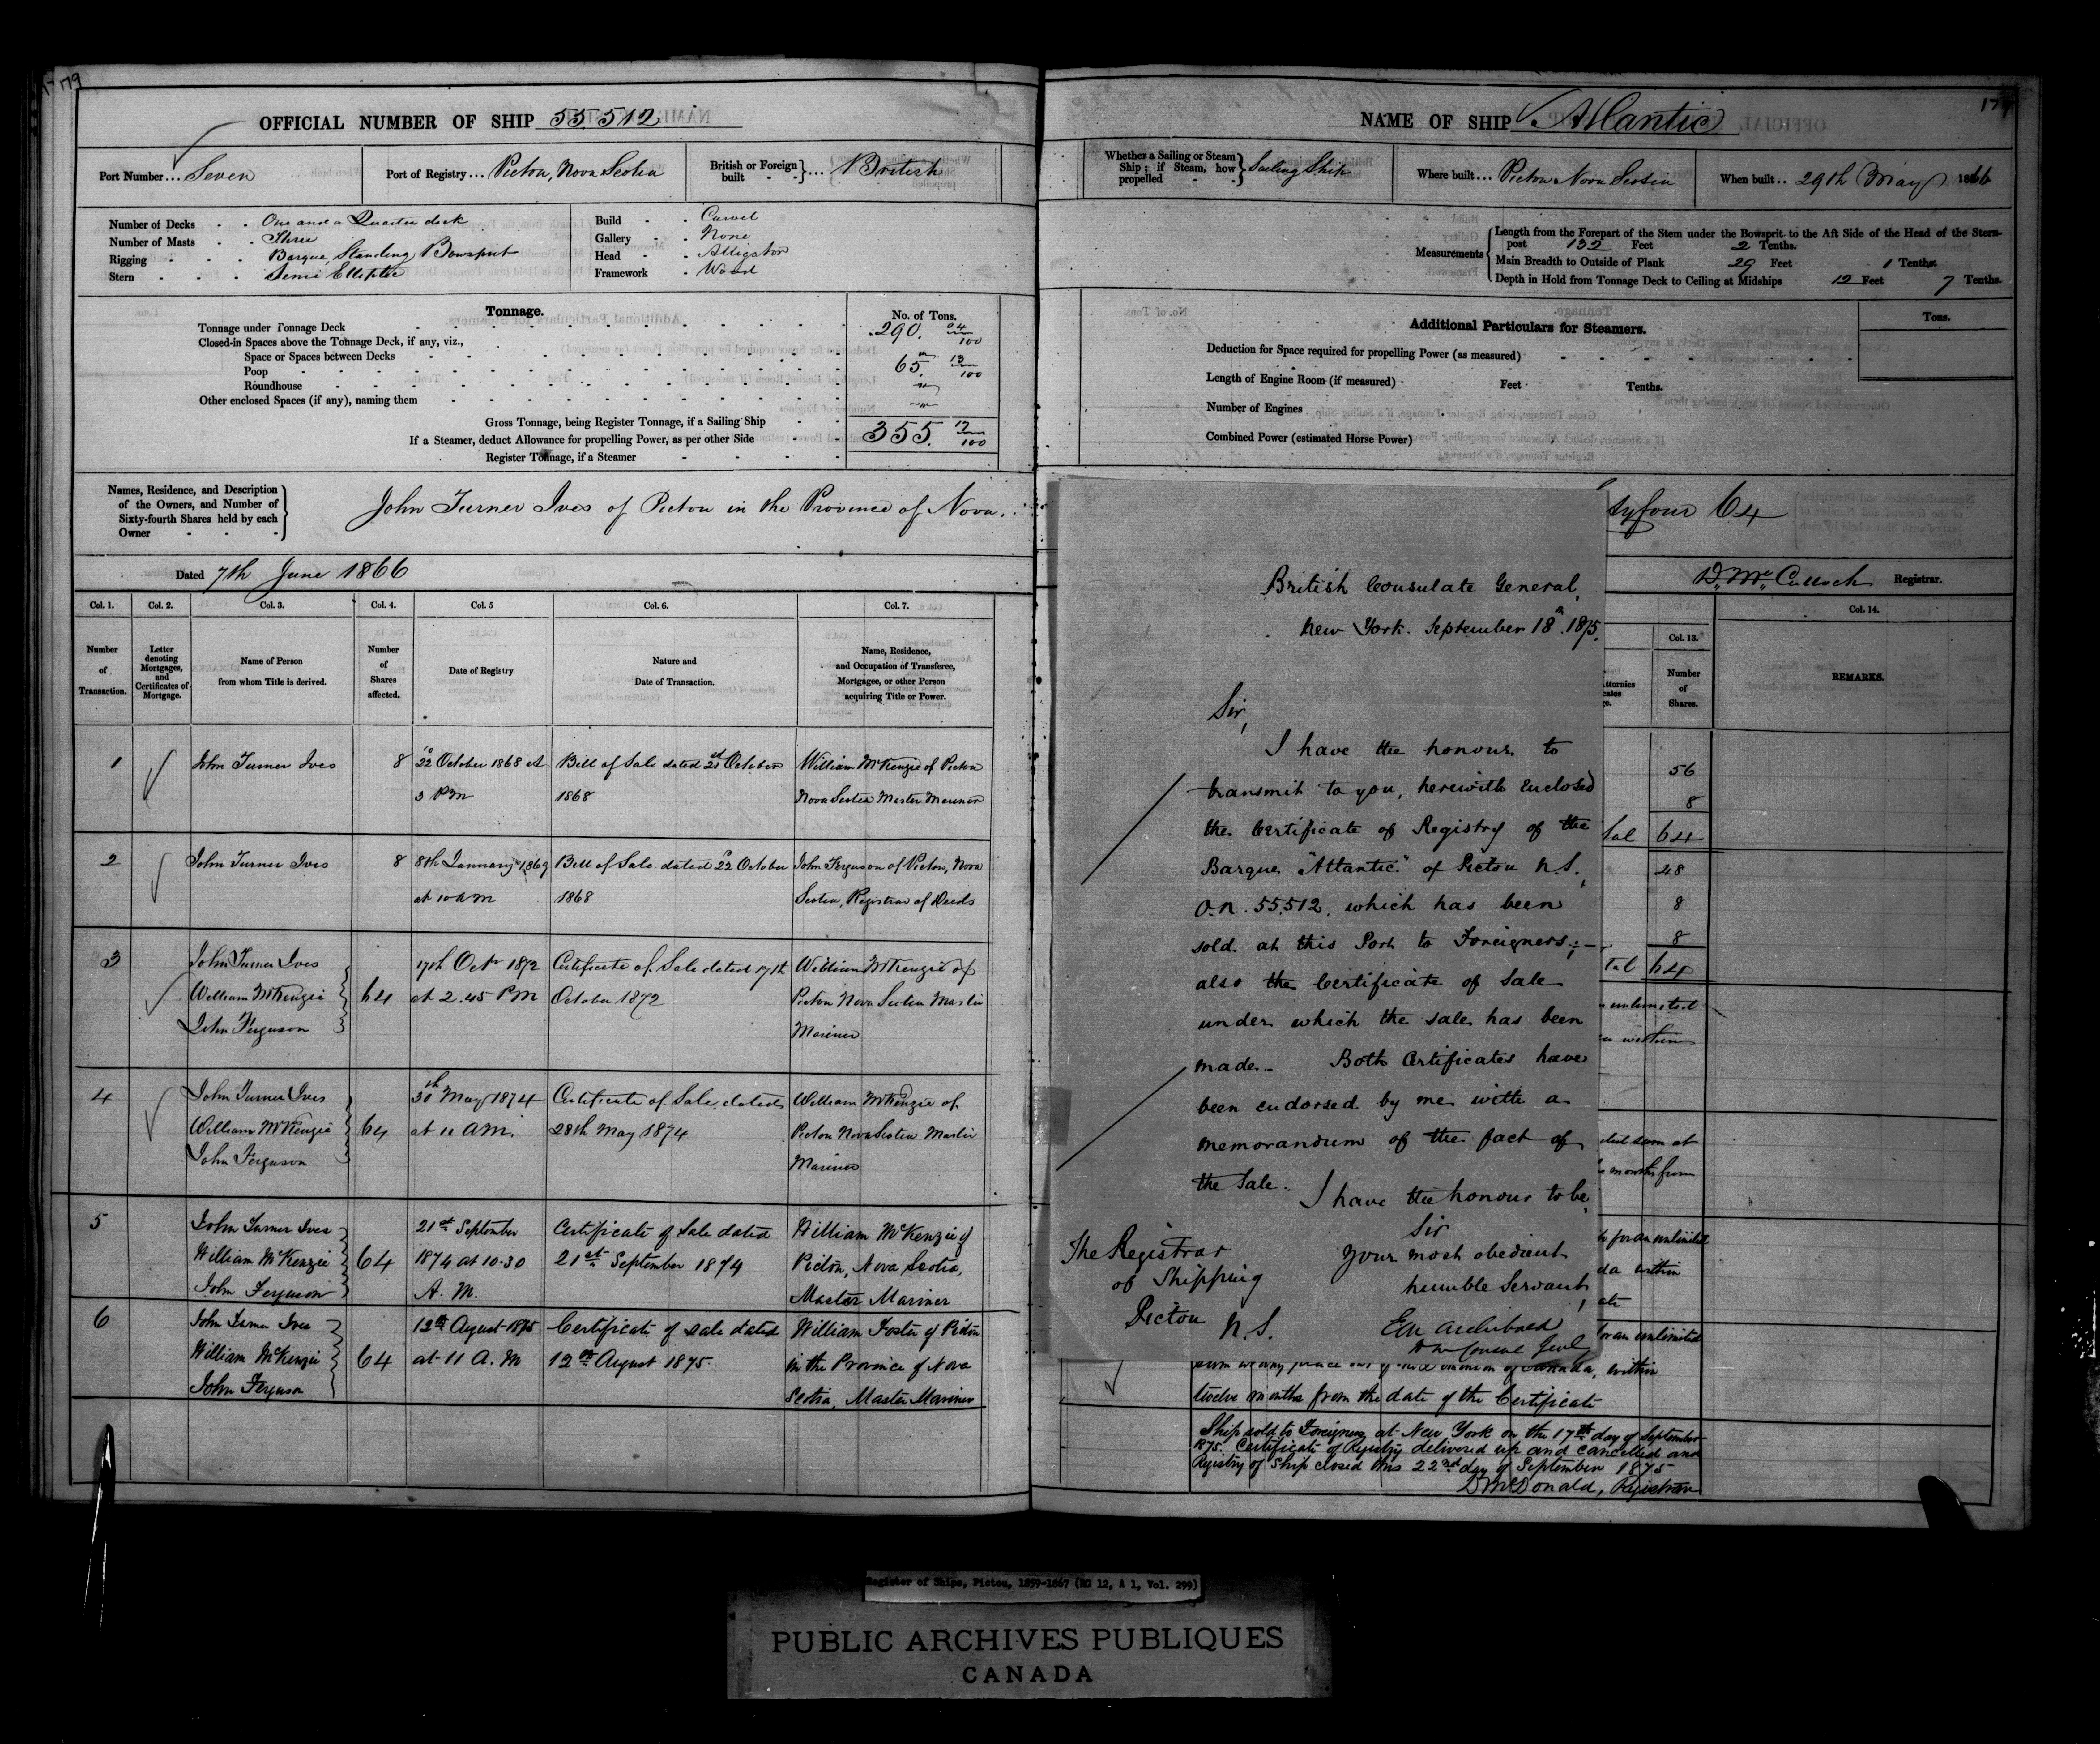 179
OFFICIAL NUMBER OF SHIP 55.512
Port Number... Seven
Port of Registry... Pictou, Nova Scotia
British or Foreign built - - } ... British
Number of Decks - - One and a Quarter deck
Number of Masts - - Three
Rigging - - - Barque, Standing Bowsprit
Stern - - - Semi Elliptic
Build - - Carvel
Gallery - - None
Head - - Alligator
Framework - Wood
Tonnage.
No. of Tons.
Tonnage under Tonnage Deck 290. 04/100
Closed-in Spaces above the Tonnage Deck, if any, viz.,
Space or Spaces between Decks
Poop 65. 13/100
Roundhouse
Other enclosed Spaces (if any), naming them
Gross Tonnage, being Register Tonnage, if a Sailing Ship
355. 17/100
If a Steamer, deduct Allowance for propelling Power, as per other Side
Register Tonnage, if a Steamer
Names, Residence, and Description
of the Owners, and Number of
Sixty-fourth Shares held by each
Owner
John Turner Ives of Pictou in the Province of Nova
Dated 7th June 1866
Col. 1. Col. 2. Col. 3. Col. 4. Col. 5 Col. 6. Col. 7.
Number of Transaction.
Letter denoting Mortgages, and Certificates of Mortgage.
Name of Person from whom Title is derived.
Number of Shares affected.
Date of Registry
Nature and Date of Transaction.
Name, Residence, and Occupation of Transferee, Mortgagee, or other Person acquiring Title or Power.
1 John Turner Ives 8 22 October 1868 at Bill of Sale dated 21st October William McKenzie of Pictou
3 PM 1868 Nova Scotia Master Mariner
2 John Turner Ives 8 8th January 1869 Bill of Sale dated 22 October John Ferguson of Pictou, Nova
at 10 AM 1868 Scotia, Registrar of Deeds
3 John Turner Ives 17th Octr 1872 Certificate of Sale dated 17th William McKenzie of
William McKenzie 64 at 2.45 PM October 1872 Pictou Nova Scotia Master
John Ferguson Mariner
4 John Turner Ives 30th May 1874 Certificate of Sale dated William McKenzie of
William McKenzie 64 at 11 AM. 28th May 1874 Pictou Nova Scotia Master
John Ferguson Mariner
5 John Turner Ives 21st September Certificate of Sale dated William McKenzie of
William McKenzie 64 1874 at 10.30 21st September 1874 Pictou, Nova Scotia,
John Ferguson A.M. Master Mariner
6 John Turner Ives 12th August 1875 Certificate of sale dated William Foster of Pictou
William McKenzie 64 at 11 A.M 12th August 1875. in the Province of Nova
John Ferguson Scotia, Master Mariner
NAME OF SHIP Atlantic
Whether a Sailing or Steam Ship; if Steam, how propelled - - } Sailing Ship
Where built... Pictou Nova Scotia
When built.. 29th May 1866
Measurements
Length from the Forepart of the Stem under the Bowsprit to the Aft Side of the Head of the Stern-
post 132 Feet 2 Tenths.
Main Breadth to Outside of Plank 29 Feet 1 Tenths.
Depth in Hold from Tonnage Deck to Ceiling at Midships 12 Feet 7 Tenths.
Additional Particulars for Steamers.
Tons.
Deduction for Space required for propelling Power (as measured)
Length of Engine Room (if measured) Feet Tenths.
Number of Engines
Combined Power (estimated Horse Power)
tyfour 64
D. McCulloch Registrar.
Col. 13. Col. 14.
Number of Shares.
REMARKS.
56
8
64
48
8
8
64
unlimited
months from
for an unlimited
within
an unlimited
British Consulate General,
New York. September 18th. 1875.
Sir,
I have the honour to
transmit to you, herewith enclosed
the Certificate of Registry of the
Barque "Atlantic" of Pictou N.S.,
O.N. 55,512, which has been
sold at this Port to Foreigners;-
also the Certificate of Sale
under which the sale has been
made. Both Certificates have
been endorsed by me with a
memorandum of the fact of
the Sale.
I have the honour to be,
Sir
Your most obedient
humble Servant,
E M Archibald
HM Consul Genl
The Registrar
of Shipping
Pictou
N.S.
Canada, within
twelve months from the date of the Certificate
Ship sold to Foreigners at New York on the 17th day of September
1875. Certificate of Registry delivered up and cancelled and
Registry of Ship closed this 22nd day of September 1875
D McDonald, Registrar
Register of Ships, Pictou, 1859-1867 (RG 12, A 1, Vol. 299)
PUBLIC ARCHIVES PUBLIQUES
CANADA